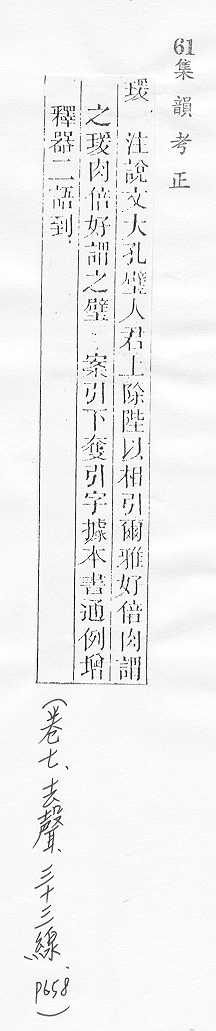 61集韻考正
瑗 注說文大孔璧人君上除陛以相引爾雅好倍肉謂
之瑗肉倍好謂之璧 案引下奪引字據本書通例增
釋器二語到
(卷七、去聲、三十三線、p658)